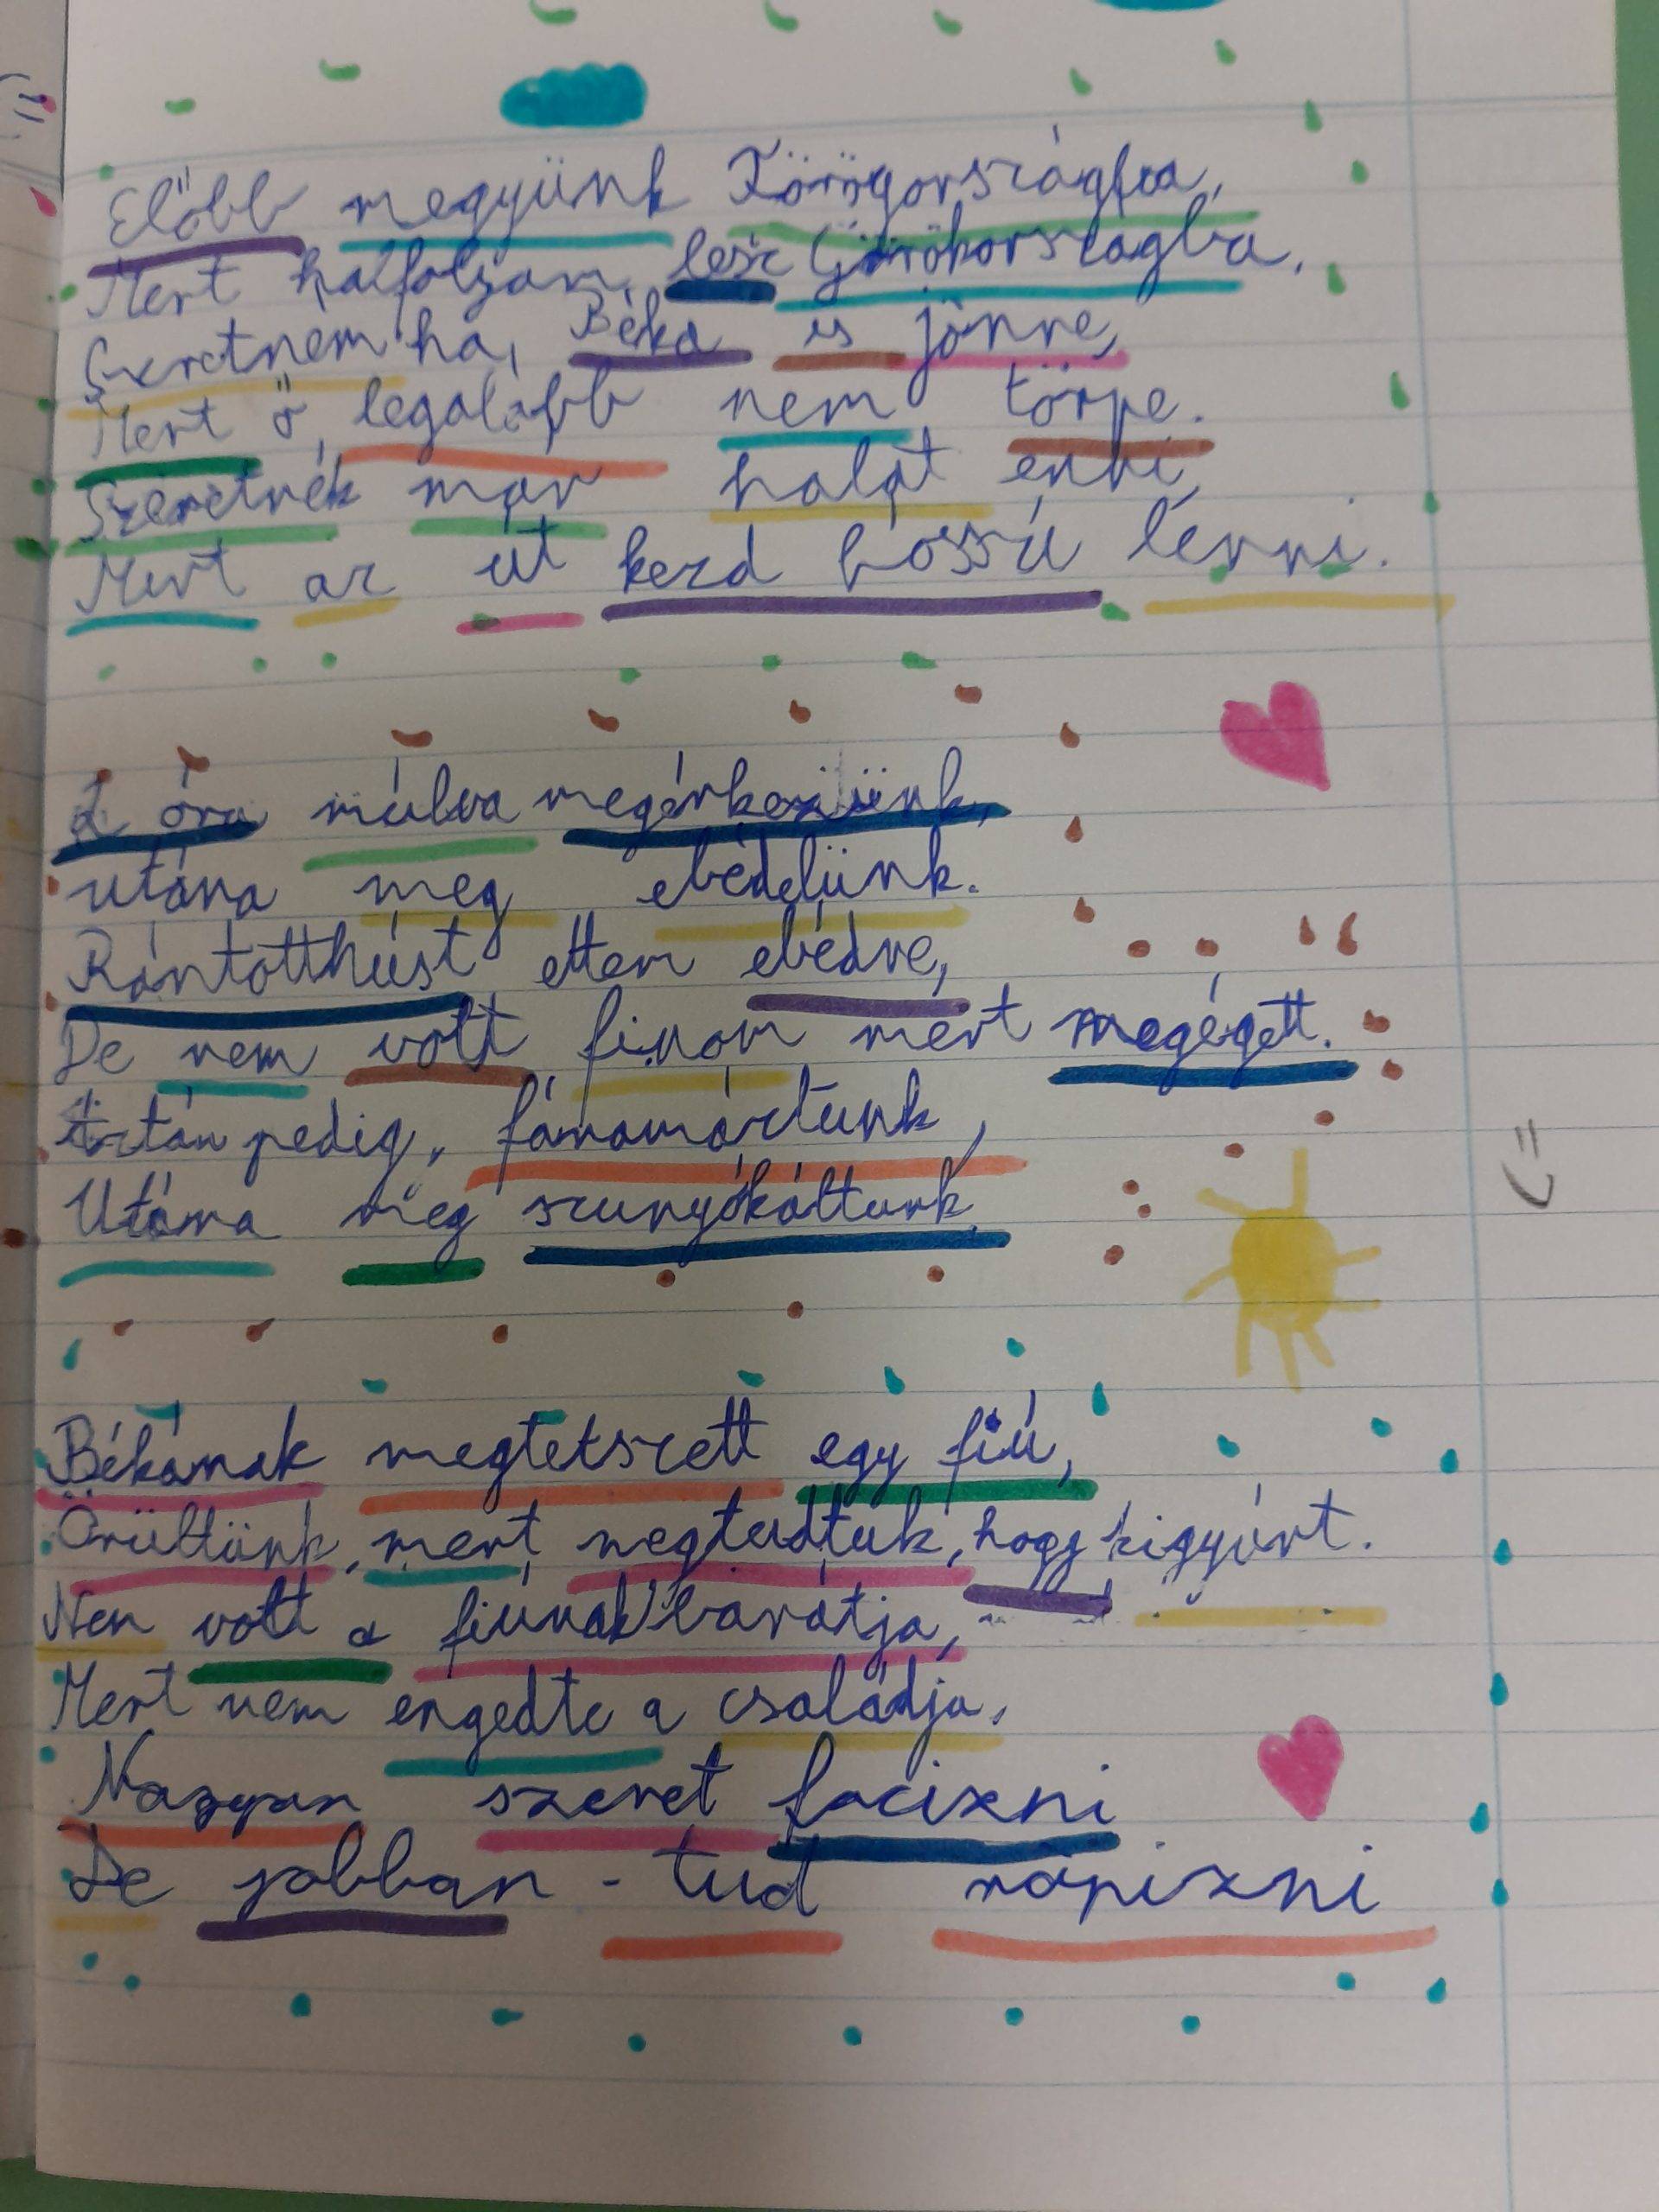 Előbb megyünk Törögországba,
Mert halfolyam lesz Görökországba.
Szeretném ha, Béka is jönne,
Mert ő, legalább nem törpe.
Szeretnék már halat enni,
Mert az út kezd hosszú lenni.
2 óra múlva megérkezünk,
utána meg ebédelünk.
Rántotthúst ettem ebédre,
De nem volt finom mert megégett.
Aztán pedig, fáramásztunk,
Utána meg szunyókáltunk.
Békának megtetszett egy fiú,
Örültünk, mert megtudtuk, hogy kigyúrt.
Nem volt a fiúnak barátja,
Mert nem engedte a családja.
Nagyon szeret focizni
De jobban - tud röpizni